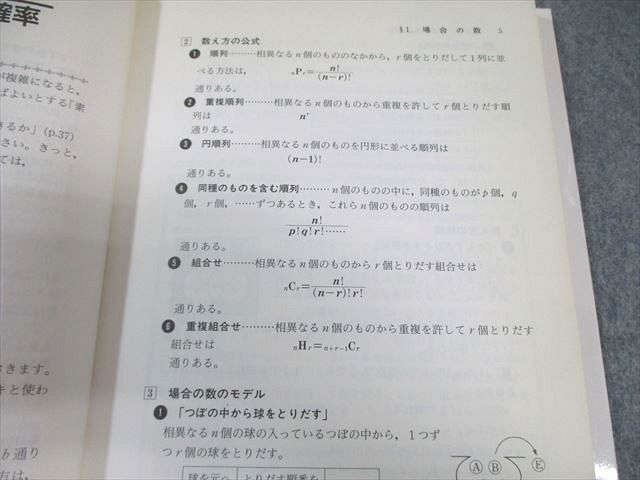 §1. 場合の数 5
2 数え方の公式
❶ 順列………相異なるn個のもののなかから，r個をとりだして1列に並
べる方法は， nPr=n!/(n-r)!
通りある。
❷ 重複順列………相異なるn個のものから重複を許してr個とりだす順
列は n^r
通りある。
❸ 円順列………相異なるn個のものを円形に並べる順列は
(n-1)!
通りある。
❹ 同種のものを含む順列………n個のものの中に，同種のものがp個，q
個，r個，……ずつあるとき，これらn個のものの順列は
n!/p!q!r!……
通りある。
❺ 組合せ………相異なるn個のものからr個とりだす組合せは
nCr=n!/(n-r)!r!
通りある。
❻ 重複組合せ………相異なるn個のものから重複を許してr個とりだす
組合せは nHr=n+r-1Cr
通りある。
3 場合の数のモデル
❶ 「つぼの中から球をとりだす」
相異なるn個の球の入っているつぼの中から，1つず
つr個の球をとりだす。
球を元へ とりだす順番を
Ⓐ Ⓑ Ⓔ
が複雑になると，
ばよいとする「素
きるか」(p.37)
さい。きっと，
ては，
おきます。
キと使わ
b通り
方は，